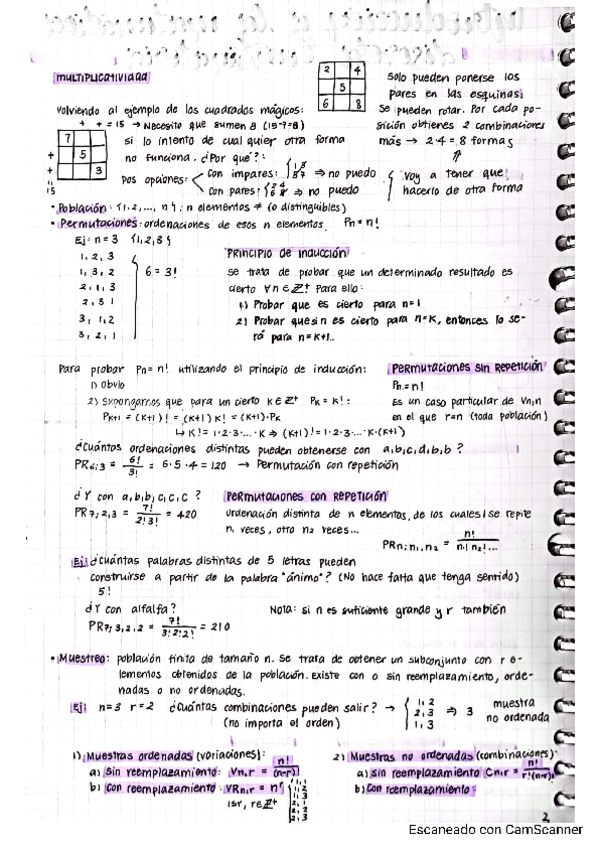 MULTIPLICATIVIDAD
2 4
5
6 8
Solo pueden ponerse los
pares en las esquinas.
Se pueden rotar. Por cada po-
sición obtienes 2 combinaciones
más → 2·4 = 8 formas
Volviendo al ejemplo de los cuadrados mágicos:
+ + = 15 → Necesito que sumen 8 (15-7=8)
7
5
3
+
+
15
si lo intento de cualquier otra forma
no funciona. ¿Por qué?:
Dos opciones:
con impares: ⇒ no puedo
con pares: ⇒ no puedo
voy a tener que
hacerlo de otra forma
• Población: {1, 2, ..., n}; n elementos ≠ (o distinguibles)
• Permutaciones: ordenaciones de esos n elementos. Pn = n!
Ej: n=3 {1,2,3}
1, 2, 3
1, 3, 2
2, 1, 3
2, 3 1
3, 1, 2
3, 2, 1
6 = 3!
PRINCIPIO DE INDUCCIÓN
Se trata de probar que un determinado resultado es
cierto ∀n ∈ Z⁺ Para ello:
1) Probar que es cierto para n=1
2) Probar que si n es cierto para n=k, entonces lo se-
rá para n=k+1..
Para probar Pn = n! utilizando el principio de inducción:
1) Obvio
2) Supongamos que para un cierto k ∈ Z⁺ Pk = k!:
Pk+1 = (k+1)! = (k+1) k! = (k+1)·Pk
↳ k! = 1·2·3·...·k ⇒ (k+1)! = 1·2·3·...·k·(k+1)
PERMUTACIONES SIN REPETICIÓN
Pn = n!
Es un caso particular de Vn,n
en el que r=n (toda población)
¿Cuántas ordenaciones distintas pueden obtenerse con a,b,c,d,b,b ?
PR6;3 = 6!/3! = 6·5·4 = 120 → Permutación con repetición
¿Y con a,b,b,c,c,c ?
PR7;2,3 = 7!/2!3! = 420
PERMUTACIONES CON REPETICIÓN
Ordenación distinta de n elementos, de los cuales 1 se repite
n₁ veces, otro n₂ veces...
PRn; n₁, n₂ = n!/n₁! n₂!...
Ej: ¿Cuántas palabras distintas de 5 letras pueden
construirse a partir de la palabra "ánimo"? (No hace falta que tenga sentido)
5!
¿Y con alfalfa ?
PR7;3,2,2 = 7!/3!2!2! = 210
Nota: si n es suficiente grande y r también
• Muestreo: población finita de tamaño n. Se trata de obtener un subconjunto con r e-
lementos obtenidos de la población. Existe con o sin reemplazamiento, orde-
nadas o no ordenadas.
Ej: n=3 r=2 ¿Cuántas combinaciones pueden salir? →
(no importa el orden)
1, 2
2, 3
1, 3
⇒ 3 muestra
no ordenada
1) Muestras ordenadas (variaciones):
a) Sin reemplazamiento: Vn,r = n!/(n-r)!
b) Con reemplazamiento: VRn,r = nʳ
1≤r, r∈Z⁺
2) Muestras no ordenadas (combinaciones):
a) Sin reemplazamiento Cn,r = n!/r!(n-r)!
b) Con reemplazamiento:
2
Escaneado con CamScanner